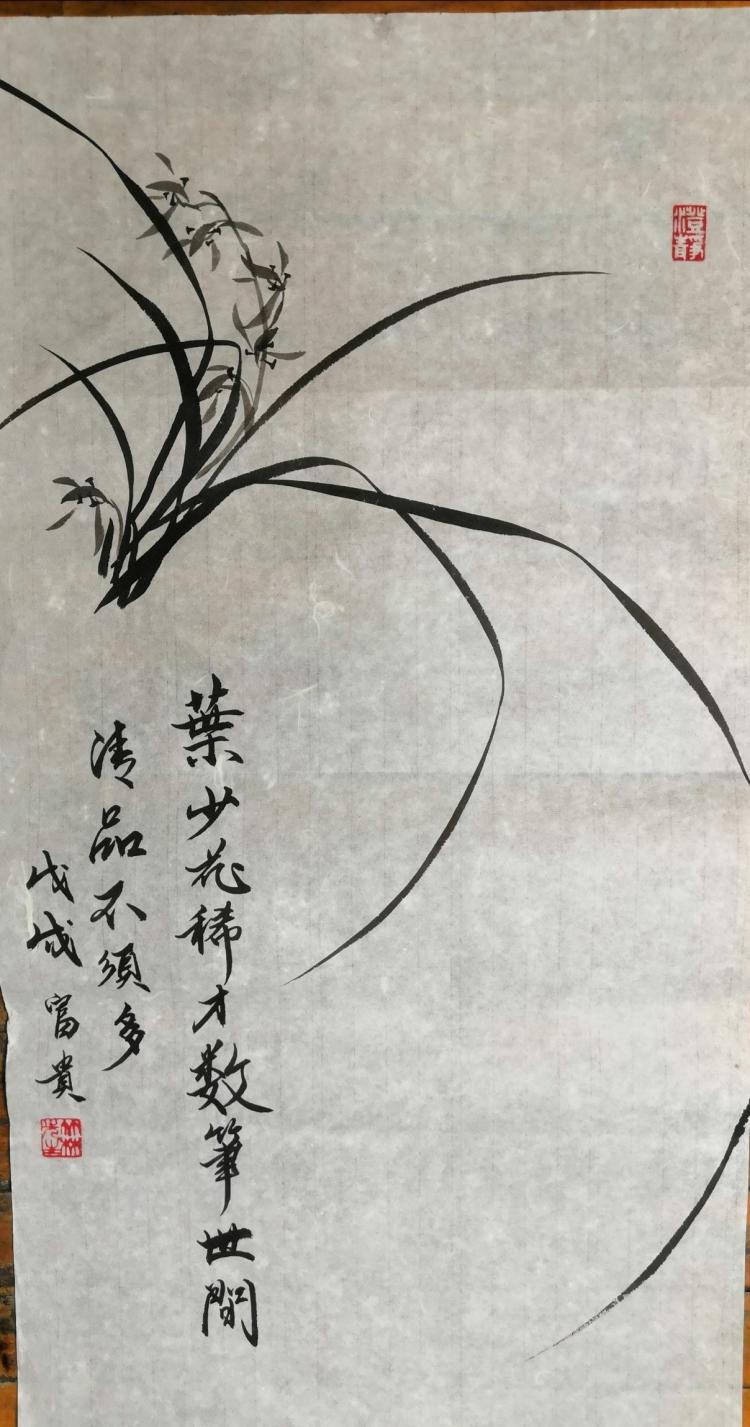 葉少花稀才数筆世間
清品不須多
戊戌富貴